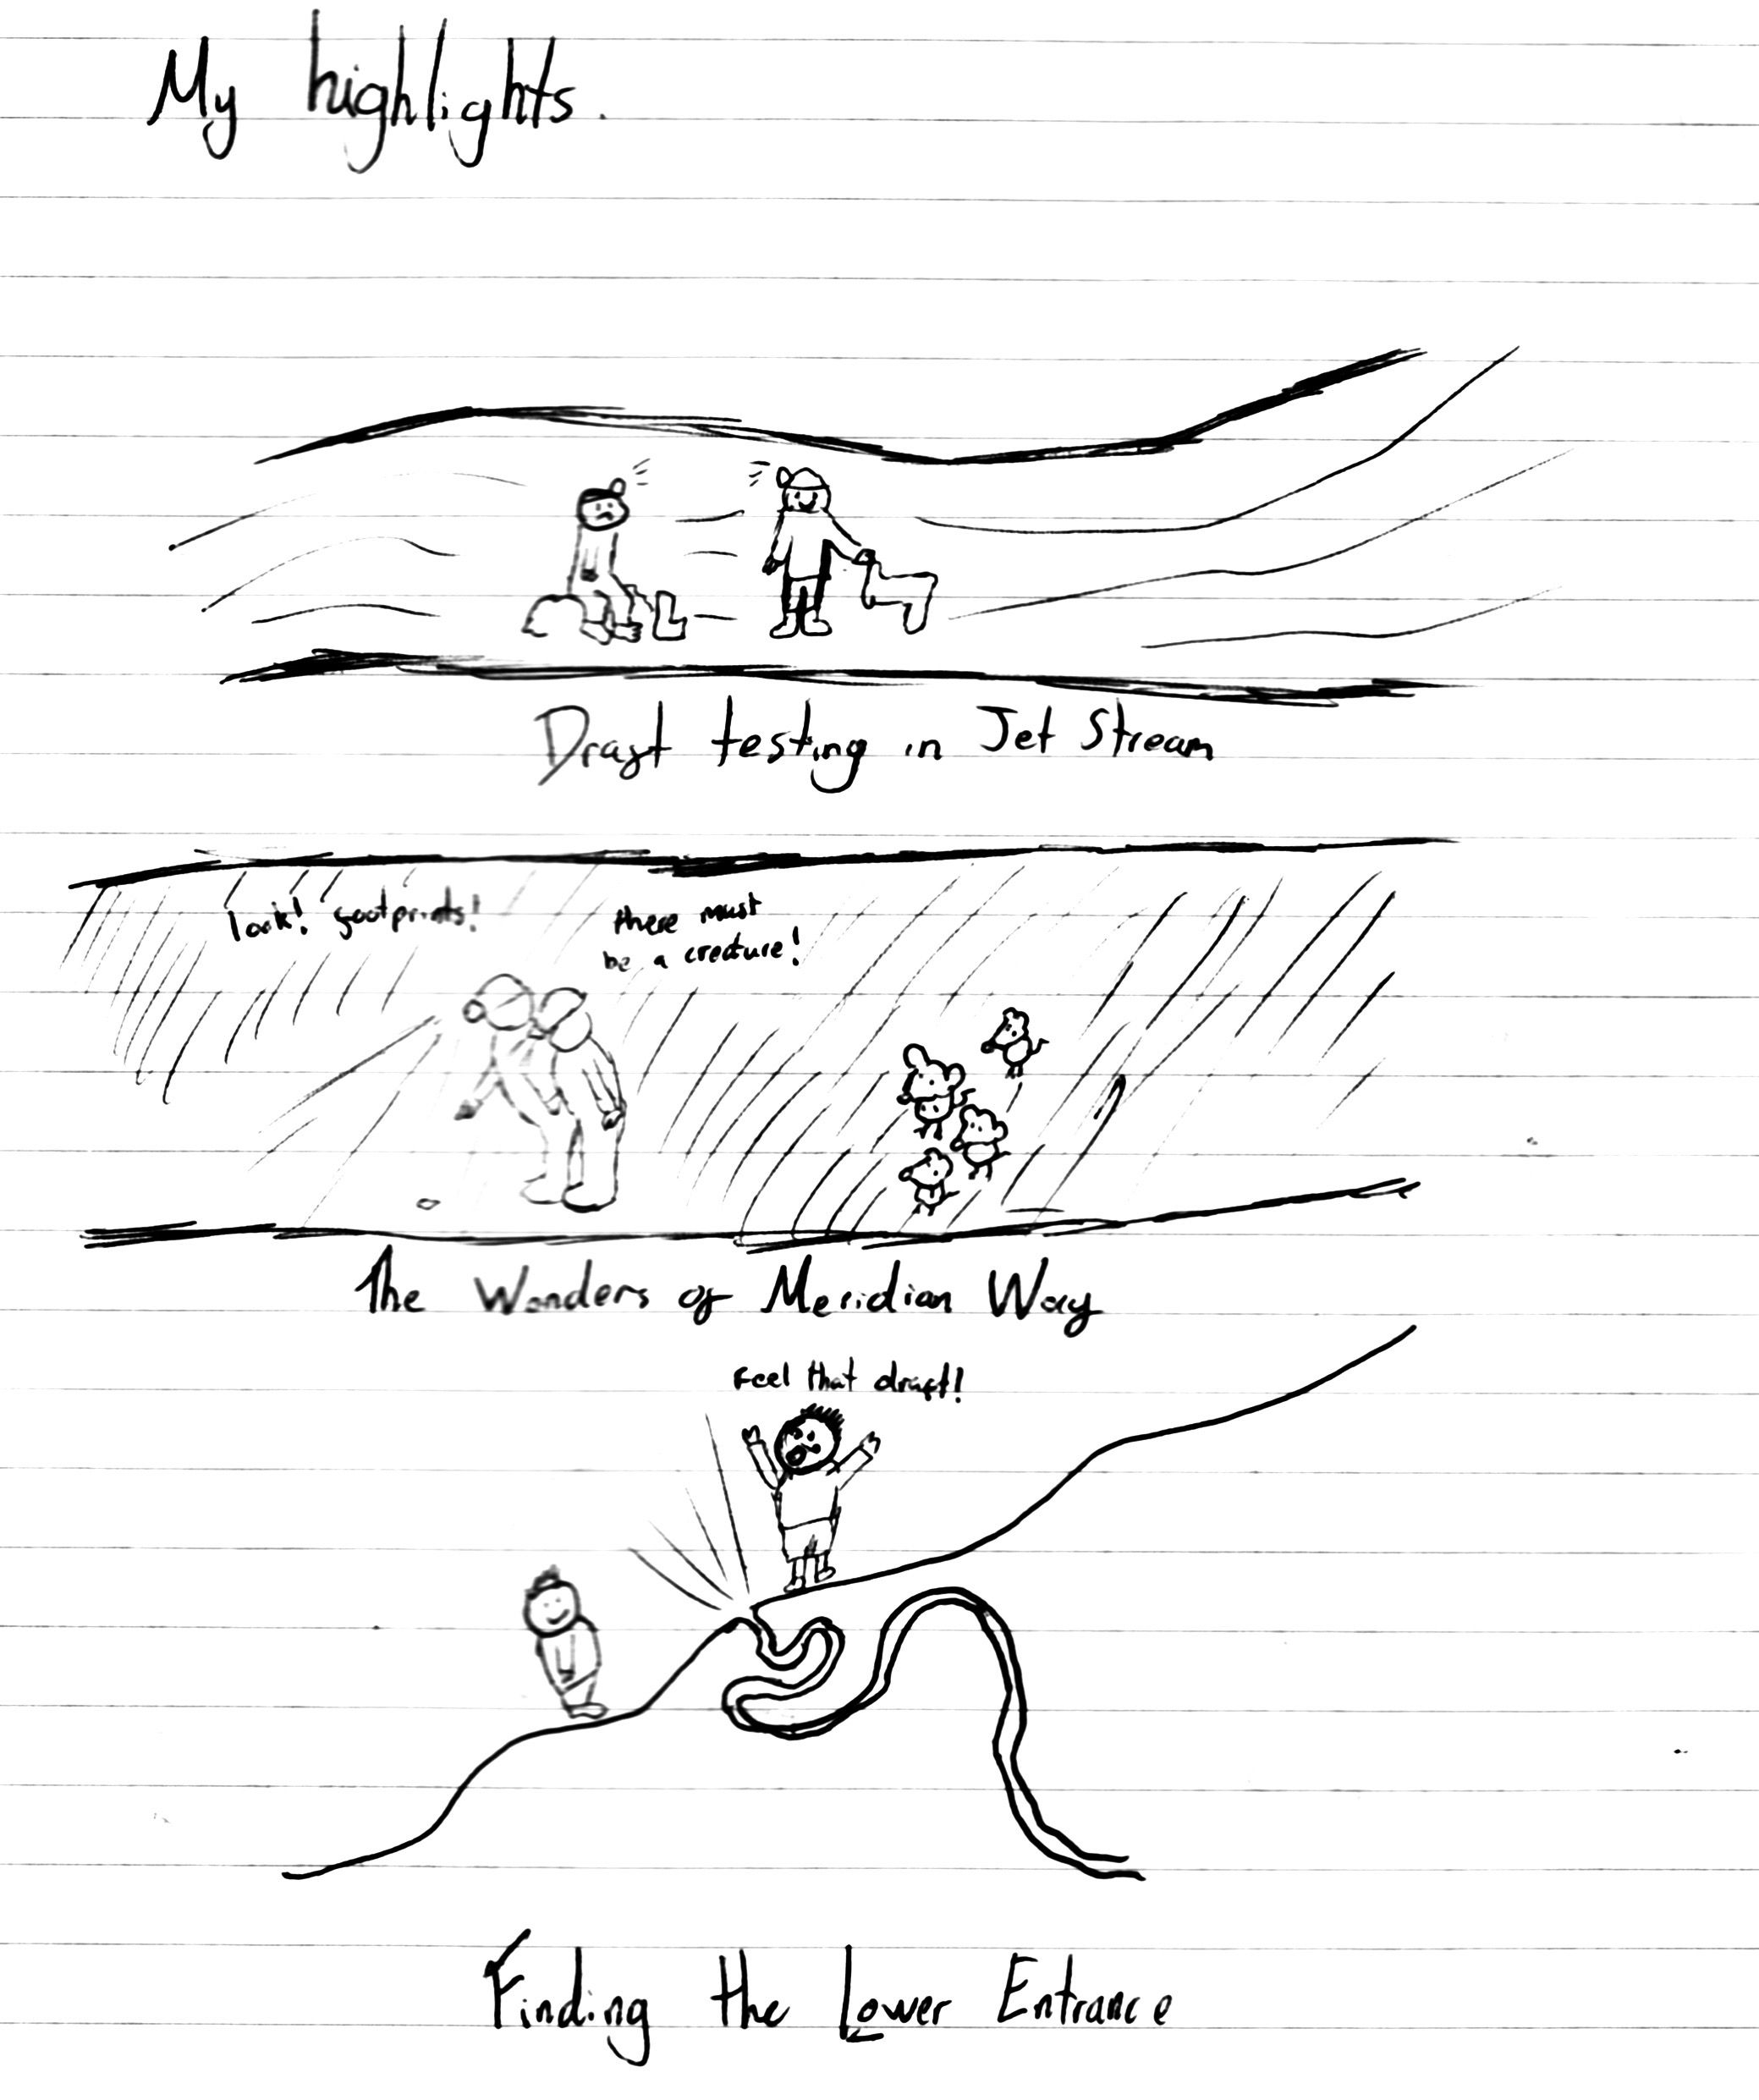 My highlights.
Draft testing in Jet Stream
look! footprints!
there must
be a creature!
The Wonders of Meridian Way
Feel that draft!
Finding the Lower Entrance